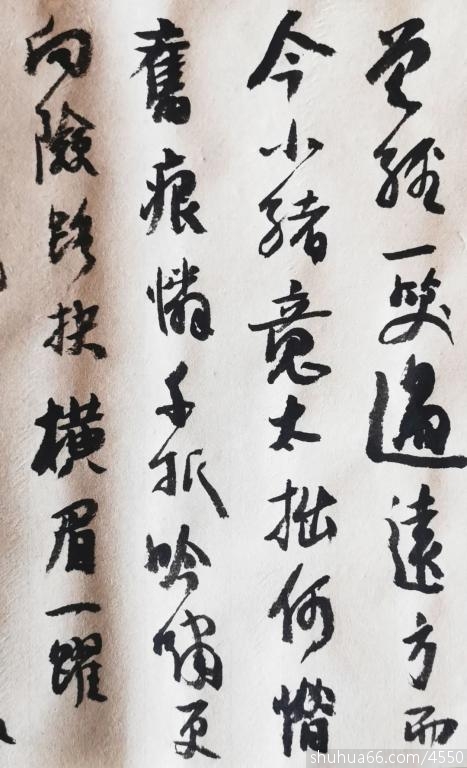 曾經一過遠方而
今小緒竟太拙何
舊痕憐千折吟嘯更
向險路抉橫眉一躍
shuhua66.com/4550